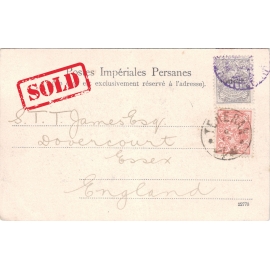 SOLD
Postes Impériales Persanes
exclusivement réservé à l'adresse).
S. T. T. James Esq
Dovercourt
Essex
England
TEHERAN
22773